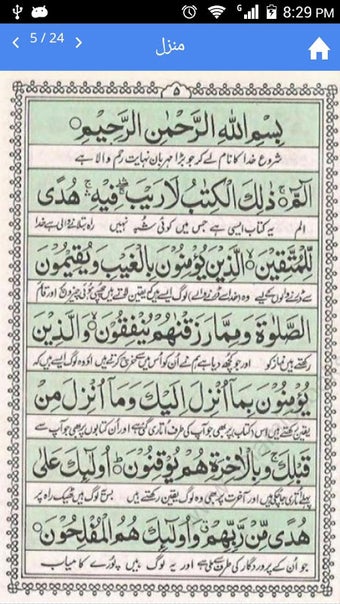 G 8:29 PM
5 / 24
منزل
۵
بِسْمِ اللّٰهِ الرَّحْمٰنِ الرَّحِيْمِ
شروع خدا کا نام لے کر جو بڑا مہربان نہایت رحم والا ہے
الٓمّٓ ۚ ذٰلِكَ الْكِتٰبُ لَا رَيْبَ ۛ فِيْهِ ۛ هُدًى
الم یہ کتاب ایسی ہے جس میں کوئی شبہ نہیں راہ بتلانے والی ہے خدا
لِّلْمُتَّقِيْنَ ۙ الَّذِيْنَ يُؤْمِنُوْنَ بِالْغَيْبِ وَيُقِيْمُوْنَ
سے ڈرنے والوں لوگ ایسے ہیں یقین چھپی ہوئی چیزوں پر اور قائم
الصَّلٰوةَ وَمِمَّا رَزَقْنٰهُمْ يُنْفِقُوْنَ ۙ وَالَّذِيْنَ
رکھتے ہیں نماز کو اور جو کچھ دیا ہے ہم نے ان کو اس میں سے خرچ کرتے ہیں اور وہ لوگ ایسے ہیں کہ
يُؤْمِنُوْنَ بِمَآ اُنْزِلَ اِلَيْكَ وَمَآ اُنْزِلَ مِنْ
یقین رکھتے ہیں اس کتاب پر بھی جو آپ کی طرف اتاری گئی ہے اور ان کتابوں پر بھی جو آپ سے
قَبْلِكَ ۚ وَبِالْاٰخِرَةِ هُمْ يُوْقِنُوْنَ ؕ اُولٰٓئِكَ عَلٰى
پہلے اتاری جا چکی ہیں اور آخرت پر بھی وہ لوگ یقین رکھتے ہیں بس یہ لوگ ہیں ٹھیک راہ پر
هُدًى مِّنْ رَّبِّهِمْ ۙ وَاُولٰٓئِكَ هُمُ الْمُفْلِحُوْنَ
جو اُن کے پروردگار کی طرف سے ملی ہے اور یہ لوگ ہیں پورے کامیاب